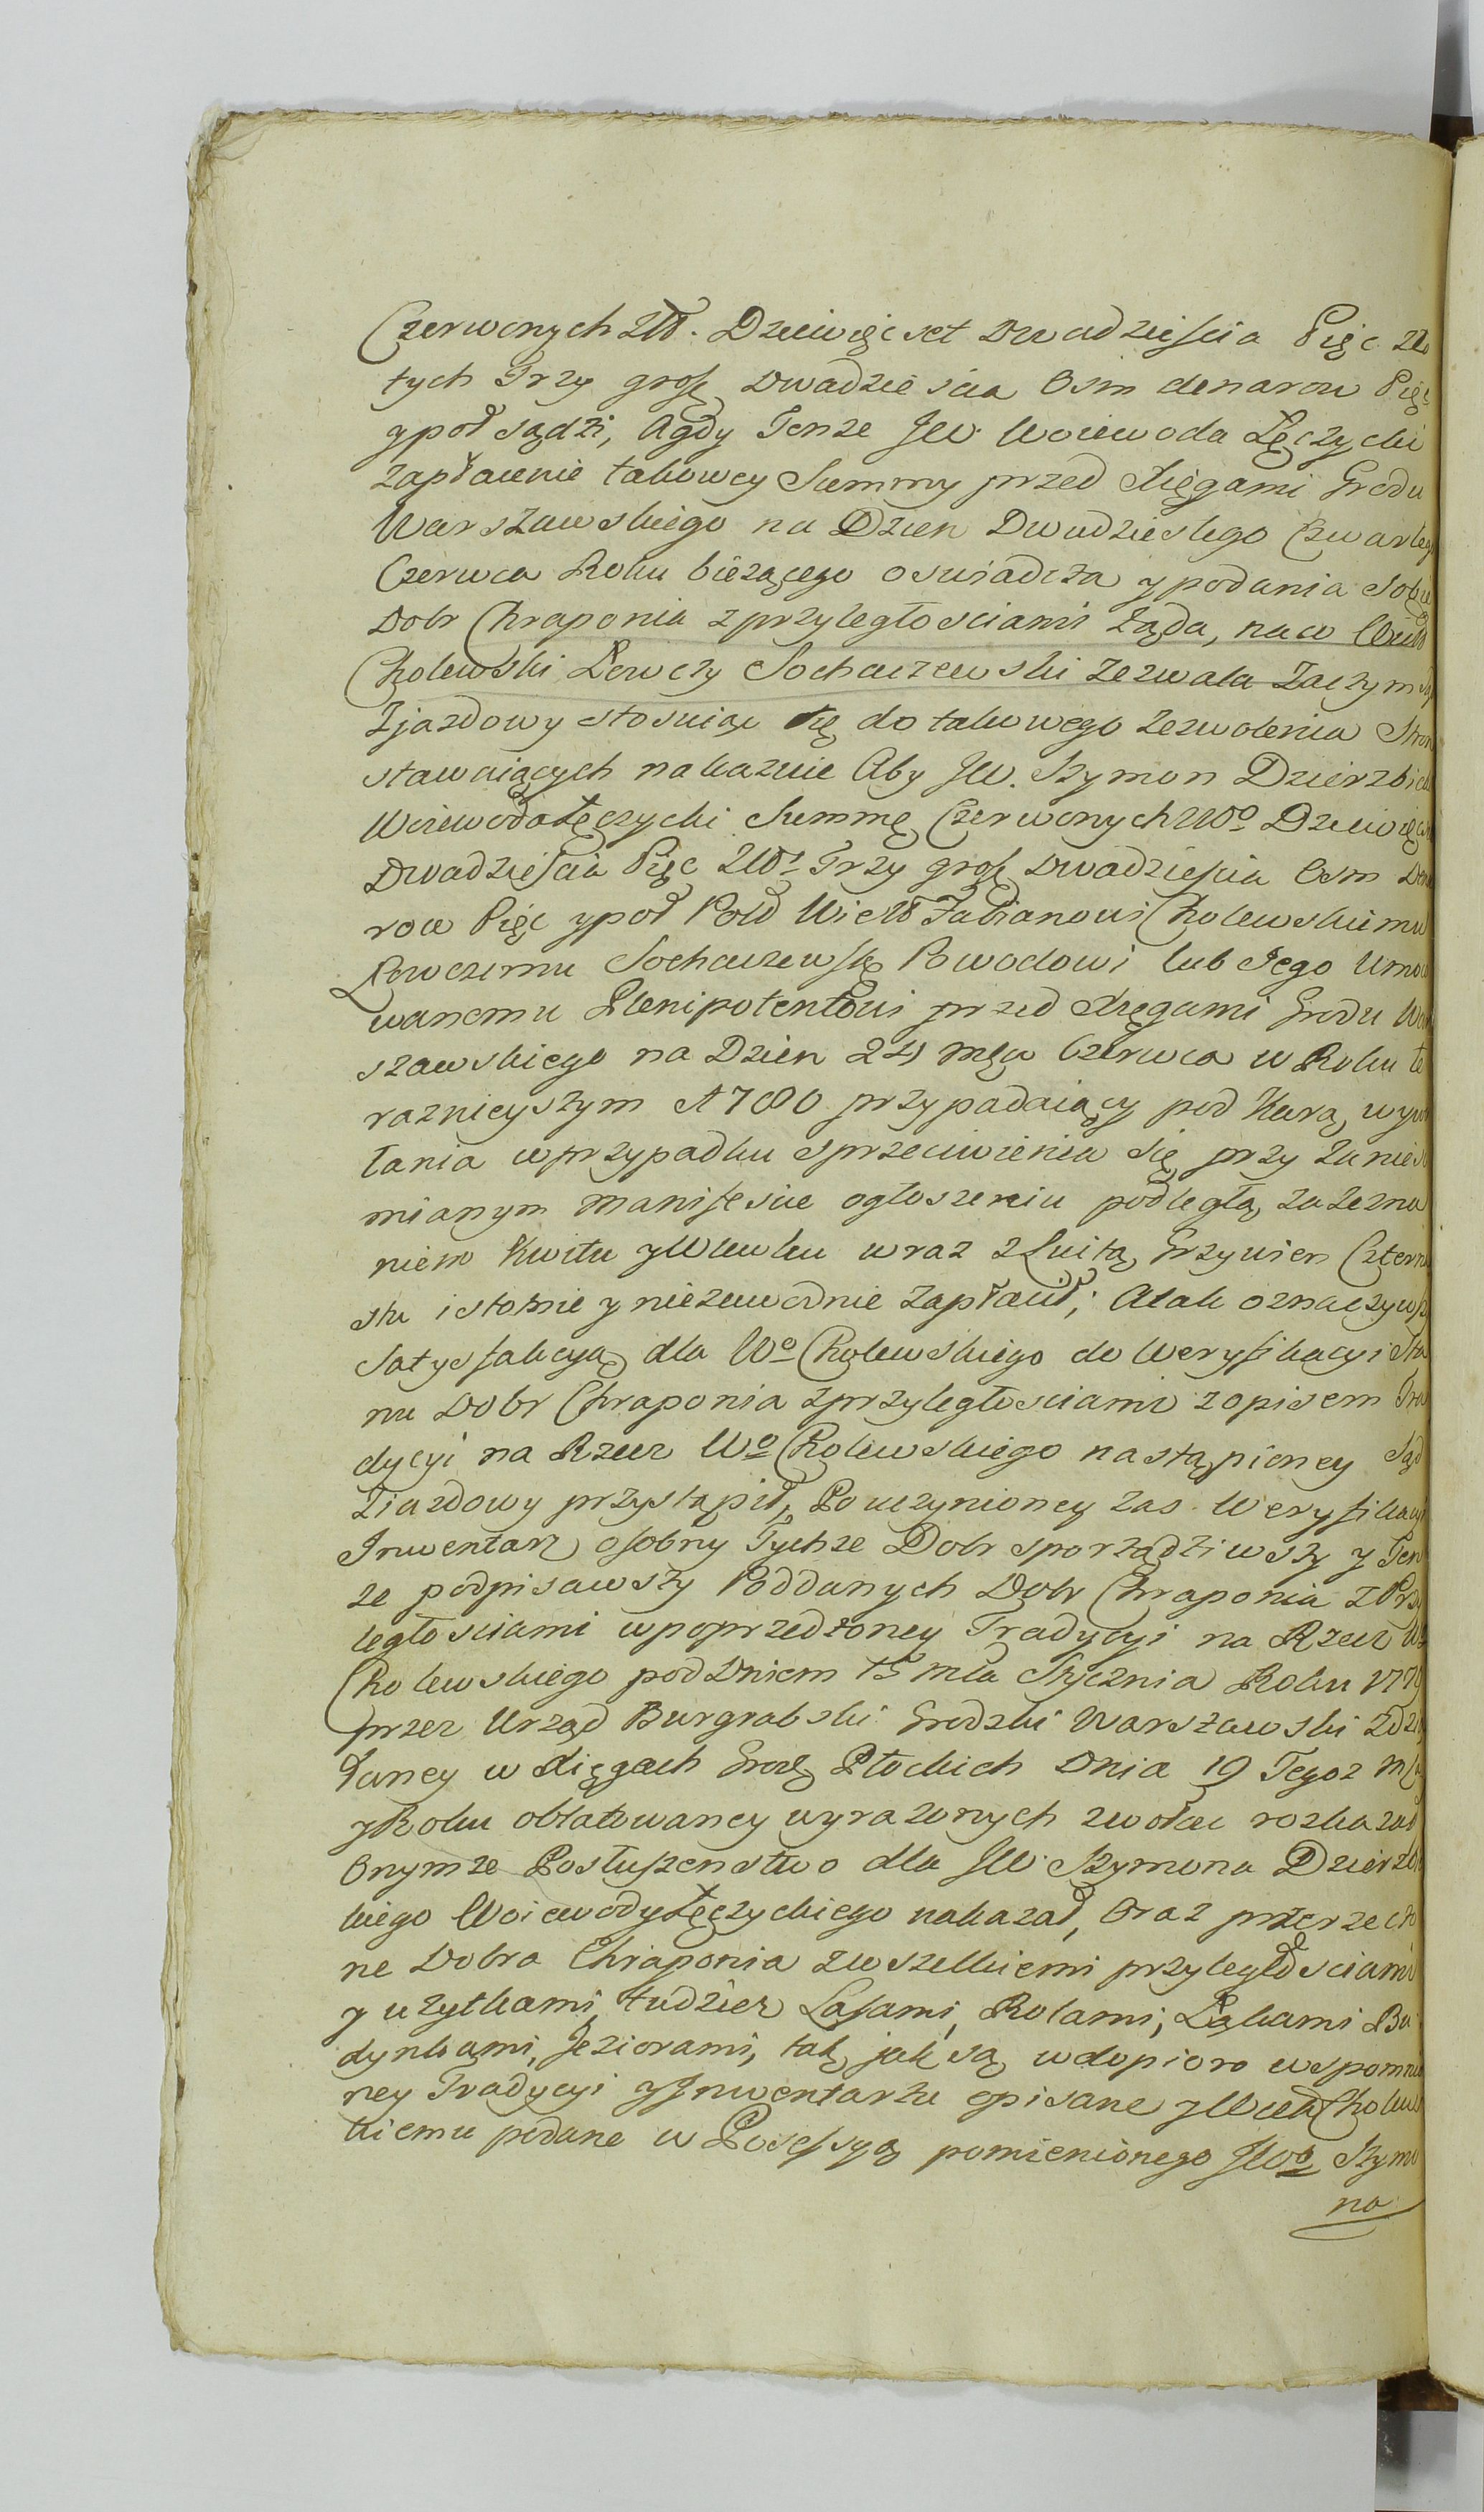 Czerwonych Złł. Dziewięćset Dwadzieścia Pięć Zło
tych Trzy grosz Dwadzieścia Osm denarow Pięć
ypoł sądzi, Agdy Tenze JW. Woiewoda Łęczycki
zapłacenie takowey Summy przed Xięgami Grodu
Warszawskiego na Dzien Dwudziestego Czwartego
Czerwca Roku bieżącego oswiadcza y podania sobie
Dobr Chraponia z przyległościami Żąda, naco Wielł
Cholewski Łowczy Sochaczewski zezwala Zaczym Sąd
Zjazdowy stosuiąc się do takowego zezwolenia Stron
stawaiących nakazuie Aby JW. Szymon Dzierzbicki
Woiewoda Łęczycki Summę Czerwonych Złło Dziewięćset
Dwadzieścia Pięć Złłt Trzy grosz Dwadzieścia Osm Dena
row Pięć ypoł Pold Wielł Fabianowi Cholewskiemu
Łowczemu Sochaczewskę Powodowi lub Jego Umoco
wanemu Plenipotentowi przed Xięgami Grodu War
szawskiego na Dzien 24 mca Czerwca w Roku te
raznieyszym 1780 przypadaiący pod Karą wywo
łania w przypadku sprzeciwienia się przy zanies
mianym manifescie ogłoszeniu podległą zazezna
niem Kwitu y Wlewku wraz z Luitą Grzywien Czterna
stu istotnie y niezawodnie zapłacił; Atak oznaczywszy
Satysfakcyą dla Wo Cholewskiego do Weryfikacyi Sta
nu Dobr Chraponia z przyległościami z opisem Tra
dycyi na Rzecz Wo Cholewskiego nastąpioney Sąd
Ziazdowy przystąpił, Po uczynioney zas Weryfikacyi
Inwentarz osobny Tychze Dobr sporządziwszy y Ten
ze podpisawszy Poddanych Dobr Chraponia z Przy
ległościami w poprzedzoney Tradycyi na Rzecz Wo
Cholewskiego pod Dniem 15 mca Stycznia Roku 1779
przez Urząd Burgrabski Grodzki Warszawski Zdzia
łaney w Xięgach Grodz Płockich Dnia 19 Tegoz mca
y Roku oblatowaney wyrazonych zwołac rozkazał
Onymze Posłuszenstwo dla JW. Szymona Dzierzbic
kiego Woiewody Łęczyckiego nakazał, Oraz przerzeczo
ne Dobra Chraponia z wszelkiemi przyległościami
y uzytkami, tudziez Lasami, Rolami, Łąkami Bu
dynkami, Jeziorami, tak jak są w dopioro wspomnio
ney Tradycyi y Inwentarzu opisane y Wielł Cholews
kiemu podane w Possessyą pomienionego JWo Szymo
na